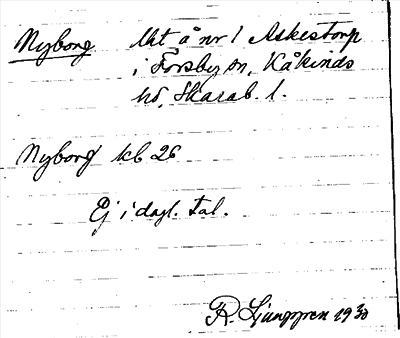 Nyborg Utt å nr 1 Askestorp
i Forsby sn, Kåkinds
hd, Skarab. l.
Nyborg kb 26
Ej i dagl. tal.
R. Ljunggren 1930